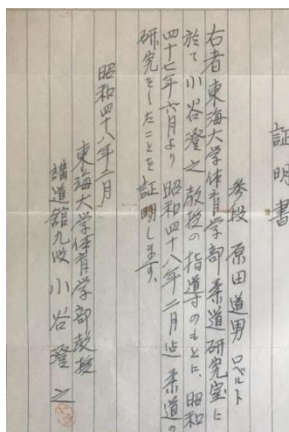 証明書
参段 原田道男 ロベルト
右者東海大学体育学部柔道研究室に
於て小谷澄之教授の指導のもとに、昭和
四十七年六月より昭和四十八年二月迄柔道の
研究をしたことを証明します。
昭和四十八年二月
東海大学体育学部教授
講道館九段 小谷澄之